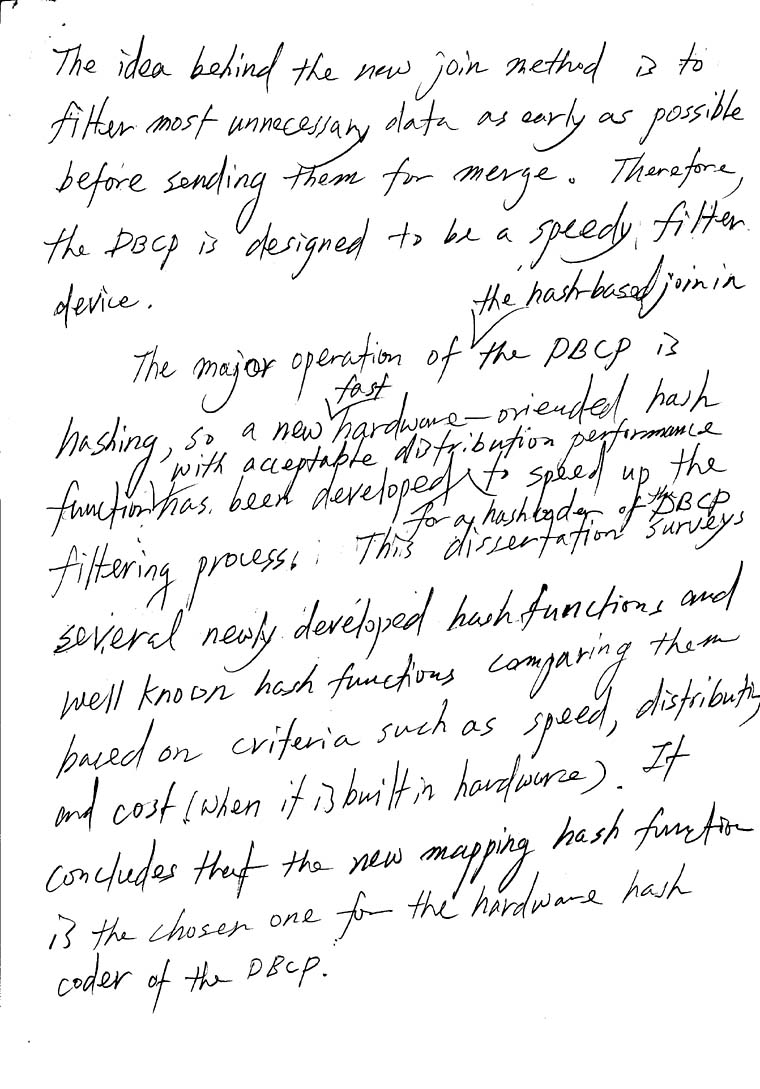 The idea behind the new join method is to
filter most unnecessary data as early as possible
before sending them for merge. Therefore,
the DBCP is designed to be a speedy filter
device.
the hash-based join in
The major operation of the DBCP is
fast
hashing, so a new hardware-oriended hash
with acceptable distribution performance
function has been developed to speed up the
for a hash coder of the DBCP
filtering process. This dissertation surveys
several newly developed hash functions and
well known hash functions comparing them
based on criteria such as speed, distributi
and cost (when it is built in hardware). It
concludes that the new mapping hash function
is the chosen one for the hardware hash
coder of the DBCP.